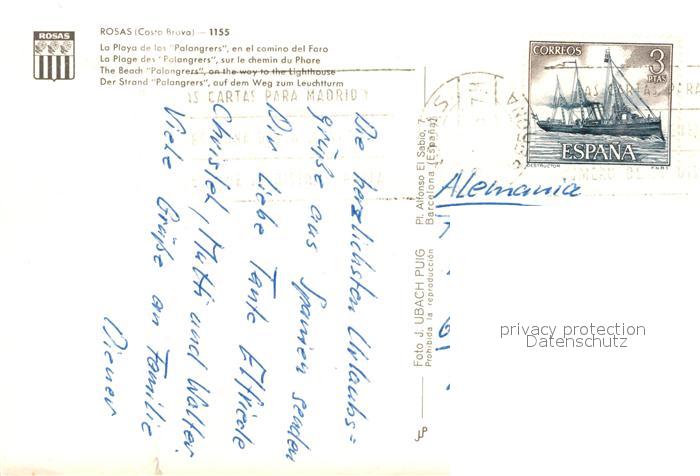 ROSAS
ROSAS (Costa Brava) — 1155
La Playa de los "Palangrers", en el camino del Faro
La Plage des "Palangrers", sur le chemin du Phare
The Beach "Palangrers", on the way to the Lighthouse
Der Strand "Palangrers", auf dem Weg zum Leuchtturm
AS CARTAS PARA MADRID Y
CORREOS
3
PTAS
ESPAÑA
DESTRUCTOR
Alemania
Die herzlichsten Urlaubs=
grüße aus Spanien senden
Dir liebe Tante Elfriede
Christel, Mutti und Walter
Viele Grüße an Familie
Diener
Foto J. UBACH PUIG
Prohibida la reproducción
Pl. Alfonso El Sabio, 7
Barcelona (España)
privacy protection
Datenschutz